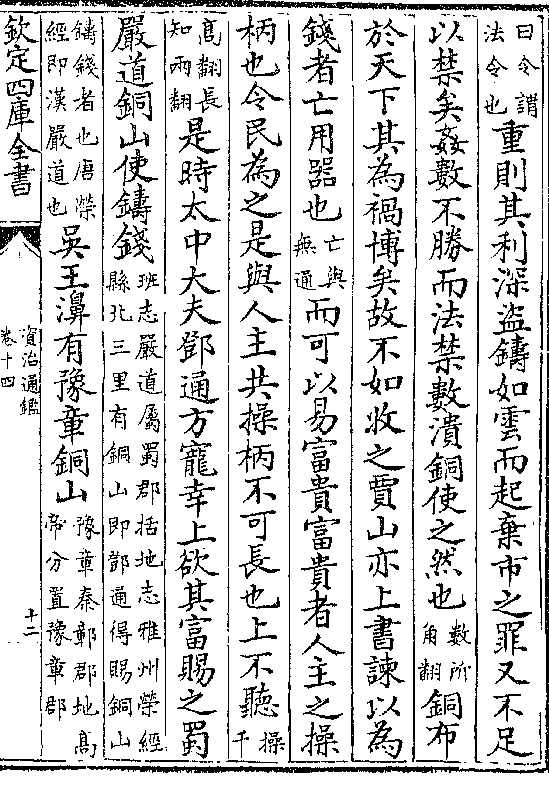 曰令謂法令也重則其利深盜鑄如雲而起棄市之罪又不足
以禁矣姦數不勝而法禁數潰銅使之然也數所角翻銅布
於天下其為禍博矣故不如收之賈山亦上書諫以為
錢者亡用器也亡與無通而可以易富貴富貴者人主之操
柄也令民為之是與人主共操柄不可長也上不聽操千
高翻長知兩翻是時太中大夫鄧通方寵幸上欲其富賜之蜀
嚴道銅山使鑄錢班志嚴道屬蜀郡括地志雅州榮經縣北三里有銅山即鄧通得賜銅山
鑄錢者也唐榮經即漢嚴道也吳王濞有豫章銅山豫章秦鄣郡地高帝分置豫章郡
欽定四庫全書
資治通鑑
卷十四
十二